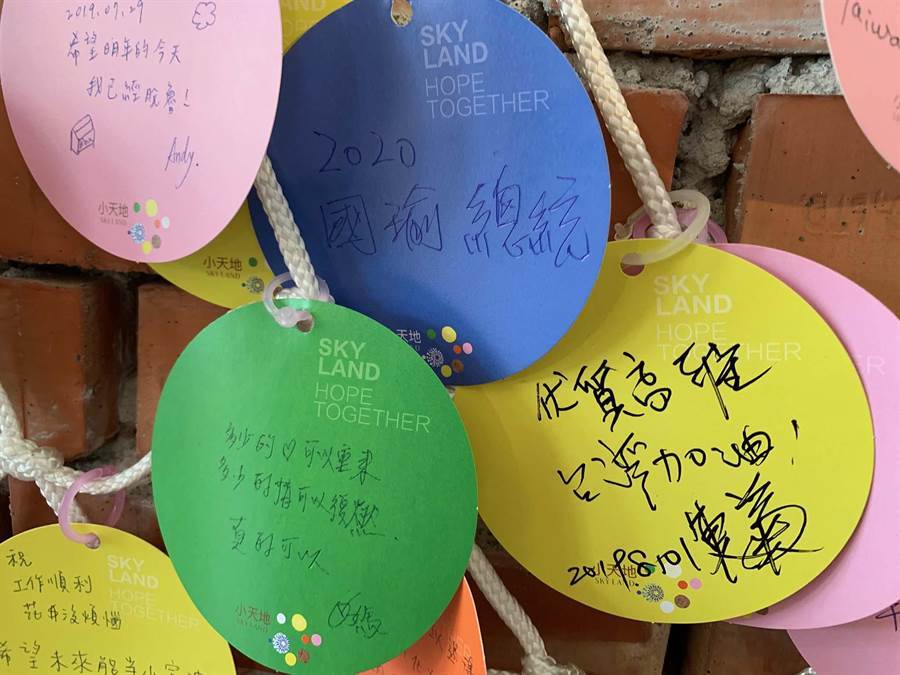 2019.07.29
希望明年的今天
我已經脫魯!
Andy.
小天地
SKYLAND
小天地
SKYLAND
SKY
LAND
HOPE
TOGETHER
2020
國瑜 總統
天地
SKY
LAND
HOPE
TOGETHER
多少的♡可以重來
多少的情可以
真的可以...
小天地
SKYLAND
SKY
LAND
HOPE
TOGETHER
質高雅
台灣加油!
2019
小天地
SKYLAND
祝
工作順利
花井沒煩惱
希望未來能
SKY
LAND
HOPE
TOGETHER
Taiwa